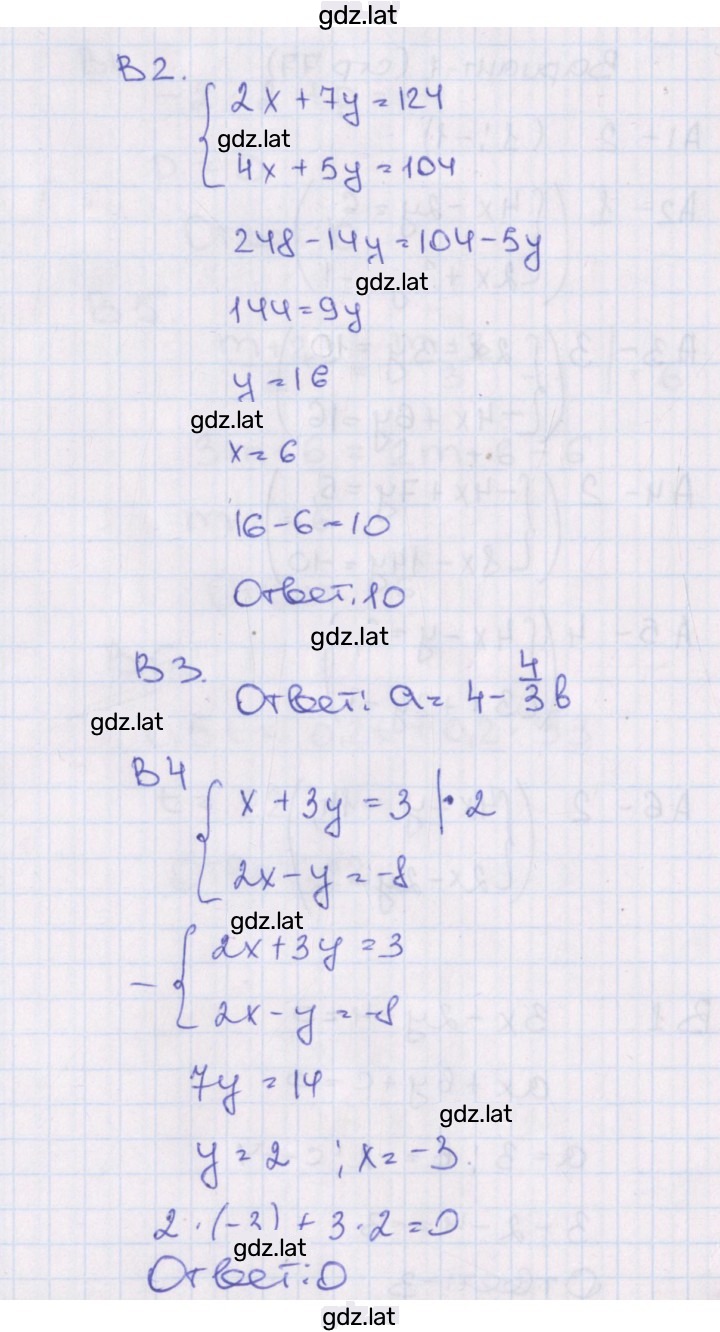 gdz.lat
В2.
2x + 7y = 124
gdz.lat
4x + 5y = 104
248 - 14y = 104 - 5y
gdz.lat
144 = 9y
y = 16
gdz.lat
x = 6
16 - 6 = 10
Ответ: 10
gdz.lat
В3.
Ответ: a = 4 - 4/3 b
gdz.lat
В4
x + 3y = 3 | · 2
2x - y = -8
gdz.lat
- 2x + 3y = 3
2x - y = -8
7y = 14
gdz.lat
y = 2 ; x = -3
2 · (-3) + 3 · 2 = 0
gdz.lat
Ответ: 0
gdz.lat